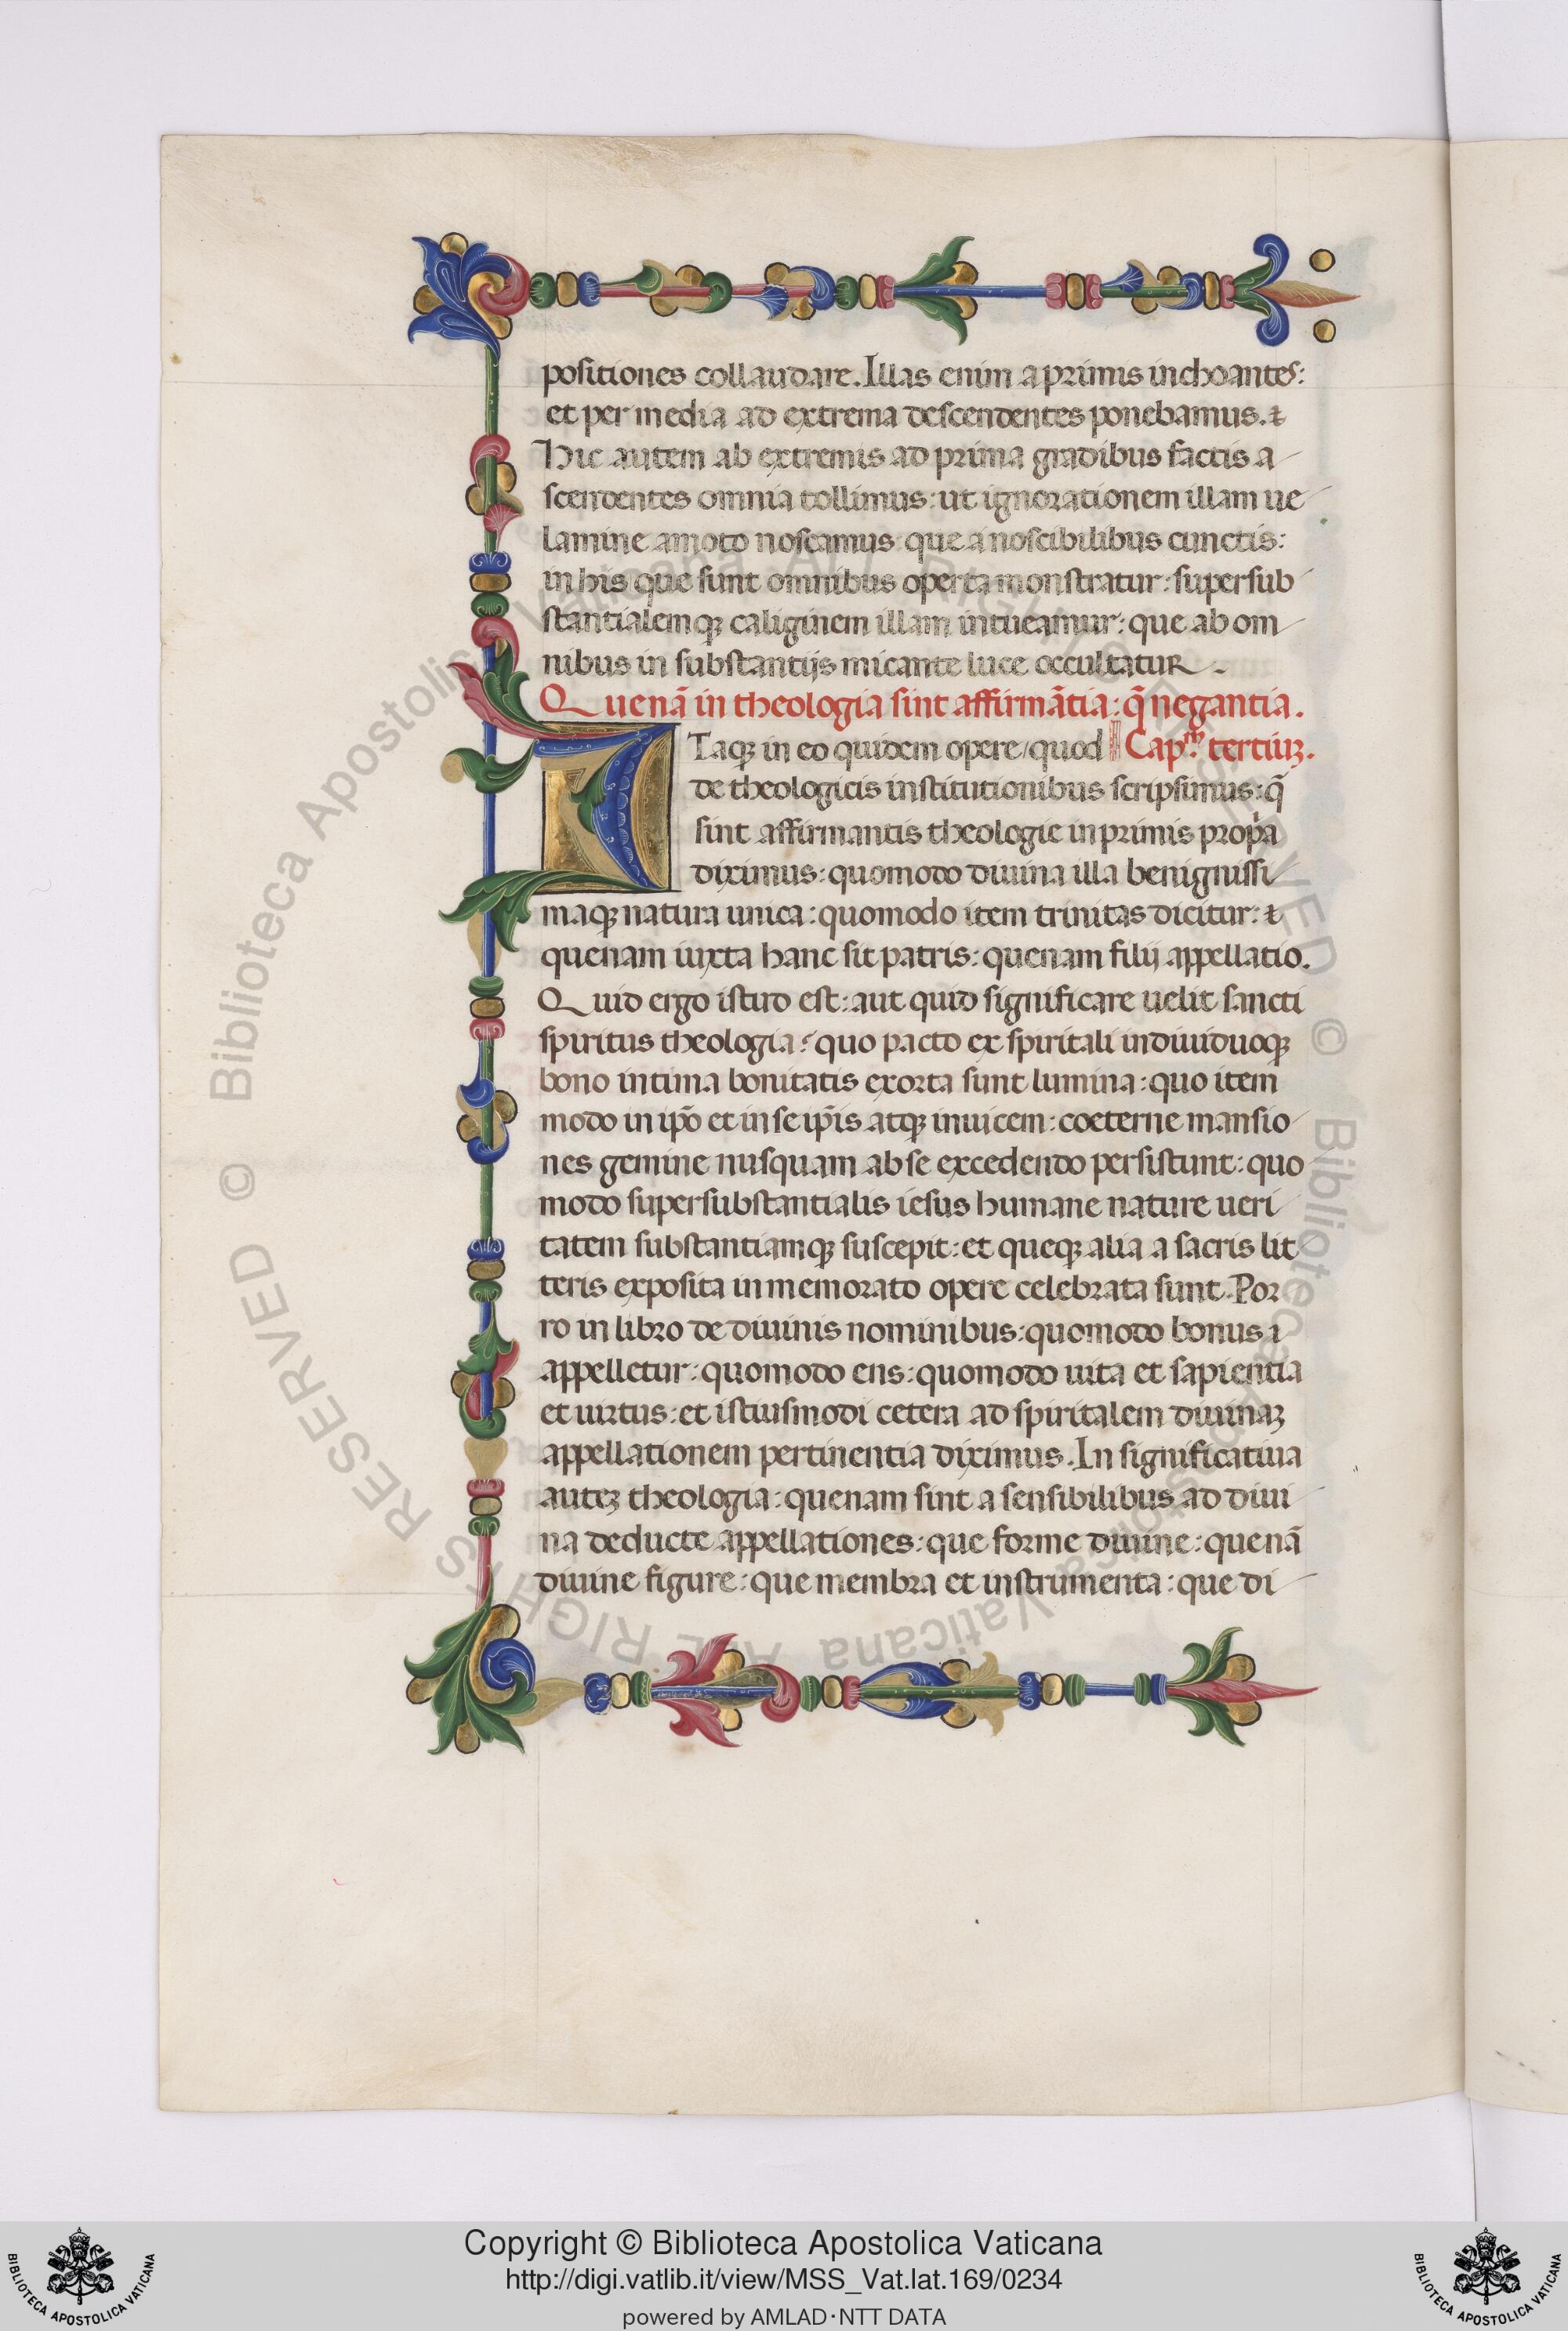 positiones collaudare. Illas enim a primis inchoantes:
et per media ad extrema descendentes ponebamus. ⁊
Hic autem ab extremis ad prima gradibus factis a
scendentes omnia tollimus: ut ignorationem illam ue
lamine amoto noscamus que a noscibilibus cunctis:
in his que sunt omnibus operta monstratur: supersub
stantialemqꝫ caliginem illam intueamur: que ab om
nibus in substantijs micante luce occultatur.
Quenã in theologia sint affirmãtia: q̃ negantia.
ITaqꝫ in eo quidem opere/quod Capᵐ. tertiuꝫ.
de theologicis institutionibus scripsimus: q̃
sint affirmantis theologie inprimis prop̃a
diximus: quomodo diuina illa benignissi
maqꝫ natura unica: quomodo item trinitas dicitur: ⁊
quenam iuxta hanc sit patris: quenam filij appellatio.
Quid ergo istud est: aut quid significare uelit sancti
spiritus theologia: quo pacto ex spiritali indiuiduoqꝫ
bono intima bonitatis exorta sunt lumina: quo item
modo in ip̃o et in se ip̃is atqꝫ inuicem: coeterne mansio
nes gemine nusquam ab se excedendo persistunt: quo
modo supersubstantialis iesus humane nature ueri
tatem substantiamqꝫ suscepit: et queqꝫ alia a sacris lit
teris exposita in memorato opere celebrata sunt. Por
ro in libro de diuinis nominibus: quomodo bonus ı
appelletur: quomodo ens: quomodo uita et sapientia
et uirtus: et istiusmodi cetera ad spiritalem diuinaꝫ
appellationem pertinentia diximus. In significatiua
auteꝫ theologia: quenam sint a sensibilibus ad diui
na deducte appellationes: que forme diuine: quenã
diuine figure: que membra et instrumenta: que di
© Biblioteca Apostolica Vaticana ALL RIGHTS RESERVED © Biblioteca Apostolica Vaticana ALL RIGHTS RESERVED
Copyright © Biblioteca Apostolica Vaticana
http://digi.vatlib.it/view/MSS_Vat.lat.169/0234
powered by AMLAD·NTT DATA
BIBLIOTECA APOSTOLICA VATICANA
BIBLIOTECA APOSTOLICA VATICANA